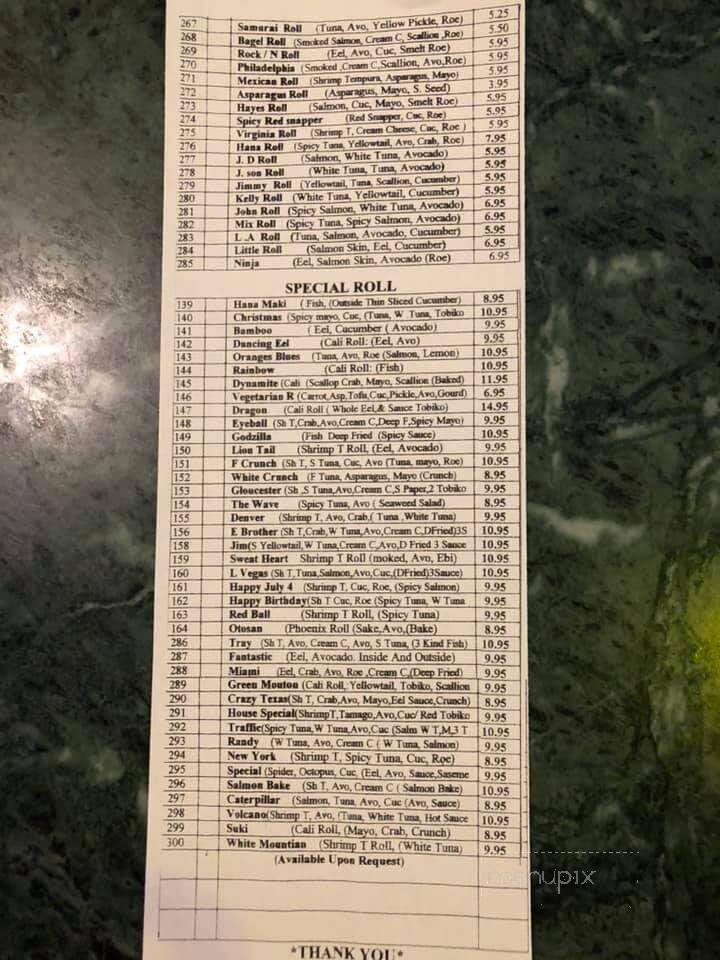 267 Samurai Roll (Tuna, Avo, Yellow Pickle, Roe) 5.25
268 Bagel Roll (Smoked Salmon, Cream C, Scallion ,Roe) 5.50
269 Rock / N Roll (Eel, Avo, Cuc, Smelt Roe) 5.95
270 Philadelphia (Smoked ,Cream C,Scallion, Avo,Roe) 5.95
271 Mexican Roll (Shrimp Tempura, Asparagus, Mayo) 5.95
272 Asparagus Roll (Asparagus, Mayo, S. Seed) 3.95
273 Hayes Roll (Salmon, Cuc, Mayo, Smelt Roe) 5.95
274 Spicy Red snapper (Red Snapper, Cuc, Roe) 5.95
275 Virginia Roll (Shrimp T, Cream Cheese, Cuc, Roe )
276 Hana Roll (Spicy Tuna, Yellowtail, Avo, Crab, Roe) 7.95
277 J. D Roll (Salmon, White Tuna, Avocado) 5.95
278 J. son Roll (White Tuna, Tuna, Avocado) 5.95
279 Jimmy Roll (Yellowtail, Tuna, Scallion, Cucumber) 5.95
280 Kelly Roll (White Tuna, Yellowtail, Cucumber) 5.95
281 John Roll (Spicy Salmon, White Tuna, Avocado) 6.95
282 Mix Roll (Spicy Tuna, Spicy Salmon, Avocado) 6.95
283 L .A Roll (Tuna, Salmon, Avocado, Cucumber) 5.95
284 Little Roll (Salmon Skin, Eel, Cucumber) 6.95
285 Ninja (Eel, Salmon Skin, Avocado (Roe) 6.95
SPECIAL ROLL
139 Hana Maki ( Fish, (Outside Thin Sliced Cucumber) 8.95
140 Christmas (Spicy mayo, Cuc, (Tuna, W .Tuna, Tobiko 10.95
141 Bamboo ( Eel, Cucumber ( Avocado) 9.95
142 Dancing Eel (Cali Roll: (Eel, Avo) 9.95
143 Oranges Blues (Tuna, Avo, Roe (Salmon, Lemon) 10.95
144 Rainbow (Cali Roll: (Fish) 10.95
145 Dynamite (Cali (Scallop Crab, Mayo, Scallion (Baked) 11.95
146 Vegetarian R (Carrot,Asp,Tofu,Cuc,Pickle,Avo,Gourd) 6.95
147 Dragon (Cali Roll ( Whole Eel,& Sauce Tobiko) 14.95
148 Eyeball (Sh T,Crab,Avo,Cream C,Deep F,Spicy Mayo) 9.95
149 Godzilla (Fish Deep Fried (Spicy Sauce) 10.95
150 Lion Tail (Shrimp T Roll, (Eel, Avocado) 9.95
151 F Crunch (Sh T, S Tuna, Cuc, Avo (Tuna, mayo, Roe) 10.95
152 White Crunch (F Tuna, Asparagus, Mayo (Crunch) 8.95
153 Gloucester (Sh ,S Tuna,Avo,Cream C,S Paper,2 Tobiko 9.95
154 The Wave (Spicy Tuna, Avo ( Seaweed Salad) 8.95
155 Denver (Shrimp T, Avo, Crab,( Tuna ,White Tuna) 9.95
156 E Brother (Sh T,Crab,W Tuna,Avo,Cream C,DFried)3S 10.95
158 Jim(S Yellowtail,W Tuna,Cream C,Avo,D Fried 3 Sauce 10.95
159 Sweat Heart Shrimp T Roll (moked, Avo, Ebi) 10.95
160 L Vegas (Sh T,Tuna,Salmon,Avo,Cuc,(DFried)3Sauce) 10.95
161 Happy July 4 (Shrimp T, Cuc, Roe, (Spicy Salmon) 9.95
162 Happy Birthday(Sh T Cuc, Roe (Spicy Tuna, W Tuna 9.95
163 Red Ball (Shrimp T Roll, (Spicy Tuna) 9.95
164 Otosan (Phoenix Roll (Sake,Avo,(Bake) 8.95
286 Tray (Sh T, Avo, Cream C, Avo, S Tuna, (3 Kind Fish) 10.95
287 Fantastic (Eel, Avocado. Inside And Outside) 9.95
288 Miami (Eel, Crab, Avo, Roe ,Cream C,(Deep Fried) 9.95
289 Green Mouton (Cali Roll, Yellowtail, Tobiko, Scallion 9.95
290 Crazy Texas(Sh T, Crab,Avo, Mayo,Eel Sauce,Crunch) 8.95
291 House Special(ShrimpT,Tamago,Avo,Cuc/ Red Tobiko 9.95
292 Traffic(Spicy Tuna,W Tuna,Avo,Cuc (Salm W T,M,3 T 10.95
293 Randy (W Tuna, Avo, Cream C ( W Tuna, Salmon) 9.95
294 New York (Shrimp T, Spicy Tuna, Cuc, Roe) 8.95
295 Special (Spider, Octopus, Cuc, (Eel, Avo, Sauce,Saseme 9.95
296 Salmon Bake (Sh T, Avo, Cream C ( Salmon Bake) 10.95
297 Caterpillar (Salmon, Tuna, Avo, Cuc (Avo, Sauce) 8.95
298 Volcano(Shrimp T, Avo, (Tuna, White Tuna, Hot Sauce 10.95
299 Suki (Cali Roll, (Mayo, Crab, Crunch) 8.95
300 White Mountian (Shrimp T Roll, (White Tuna) 9.95
(Available Upon Request)
menupix
*THANK YOU*